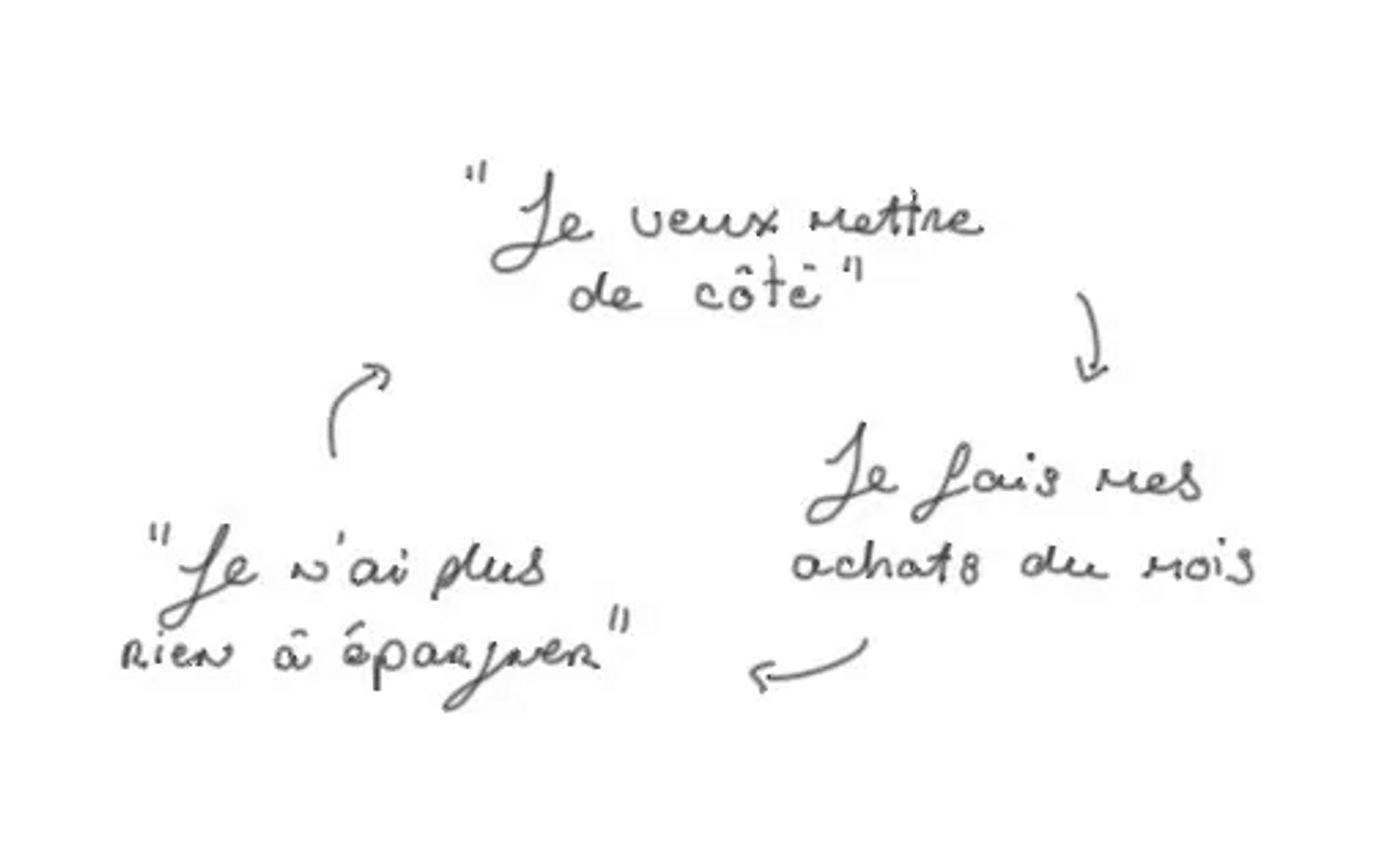 "Je veux mettre
de côté"
Je fais mes
achats du mois
"Je n'ai plus
rien à épargner"